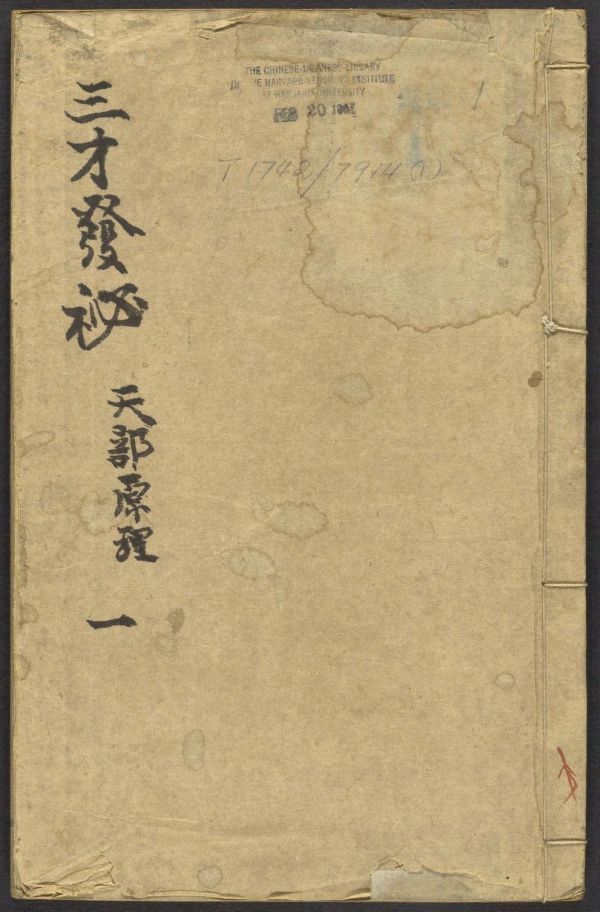 三才發祕
天部原理
一
THE CHINESE-JAPANESE LIBRARY
OF THE HARVARD-YENCHING INSTITUTE
AT HARVARD UNIVERSITY
FEB 20
1
T 1742/7914 (1)